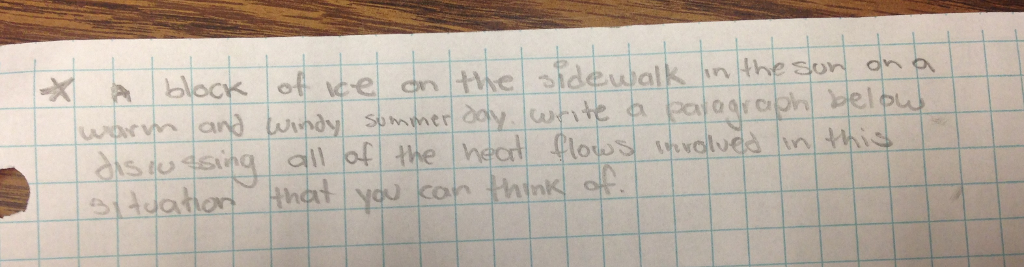 * A block of ice on the sidewalk in the sun on a
warm and windy summer day. write a paragraph below
discussing all of the heat flows involved in this
situation that you can think of.